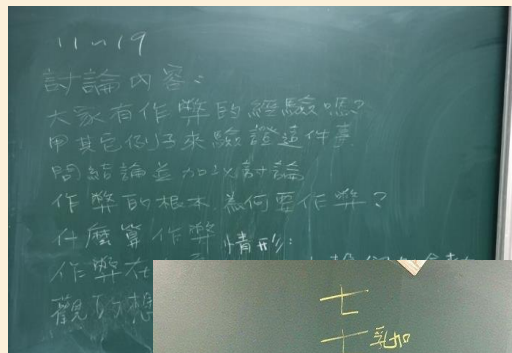 11~19
討論內容：
大家有作弊的經驗嗎？
用其它例子來驗證這件事
問結論並加以討論
作弊的根本 為何要作弊？
什麼算作弊
情形：
作弊在
觀
七
十 乳加